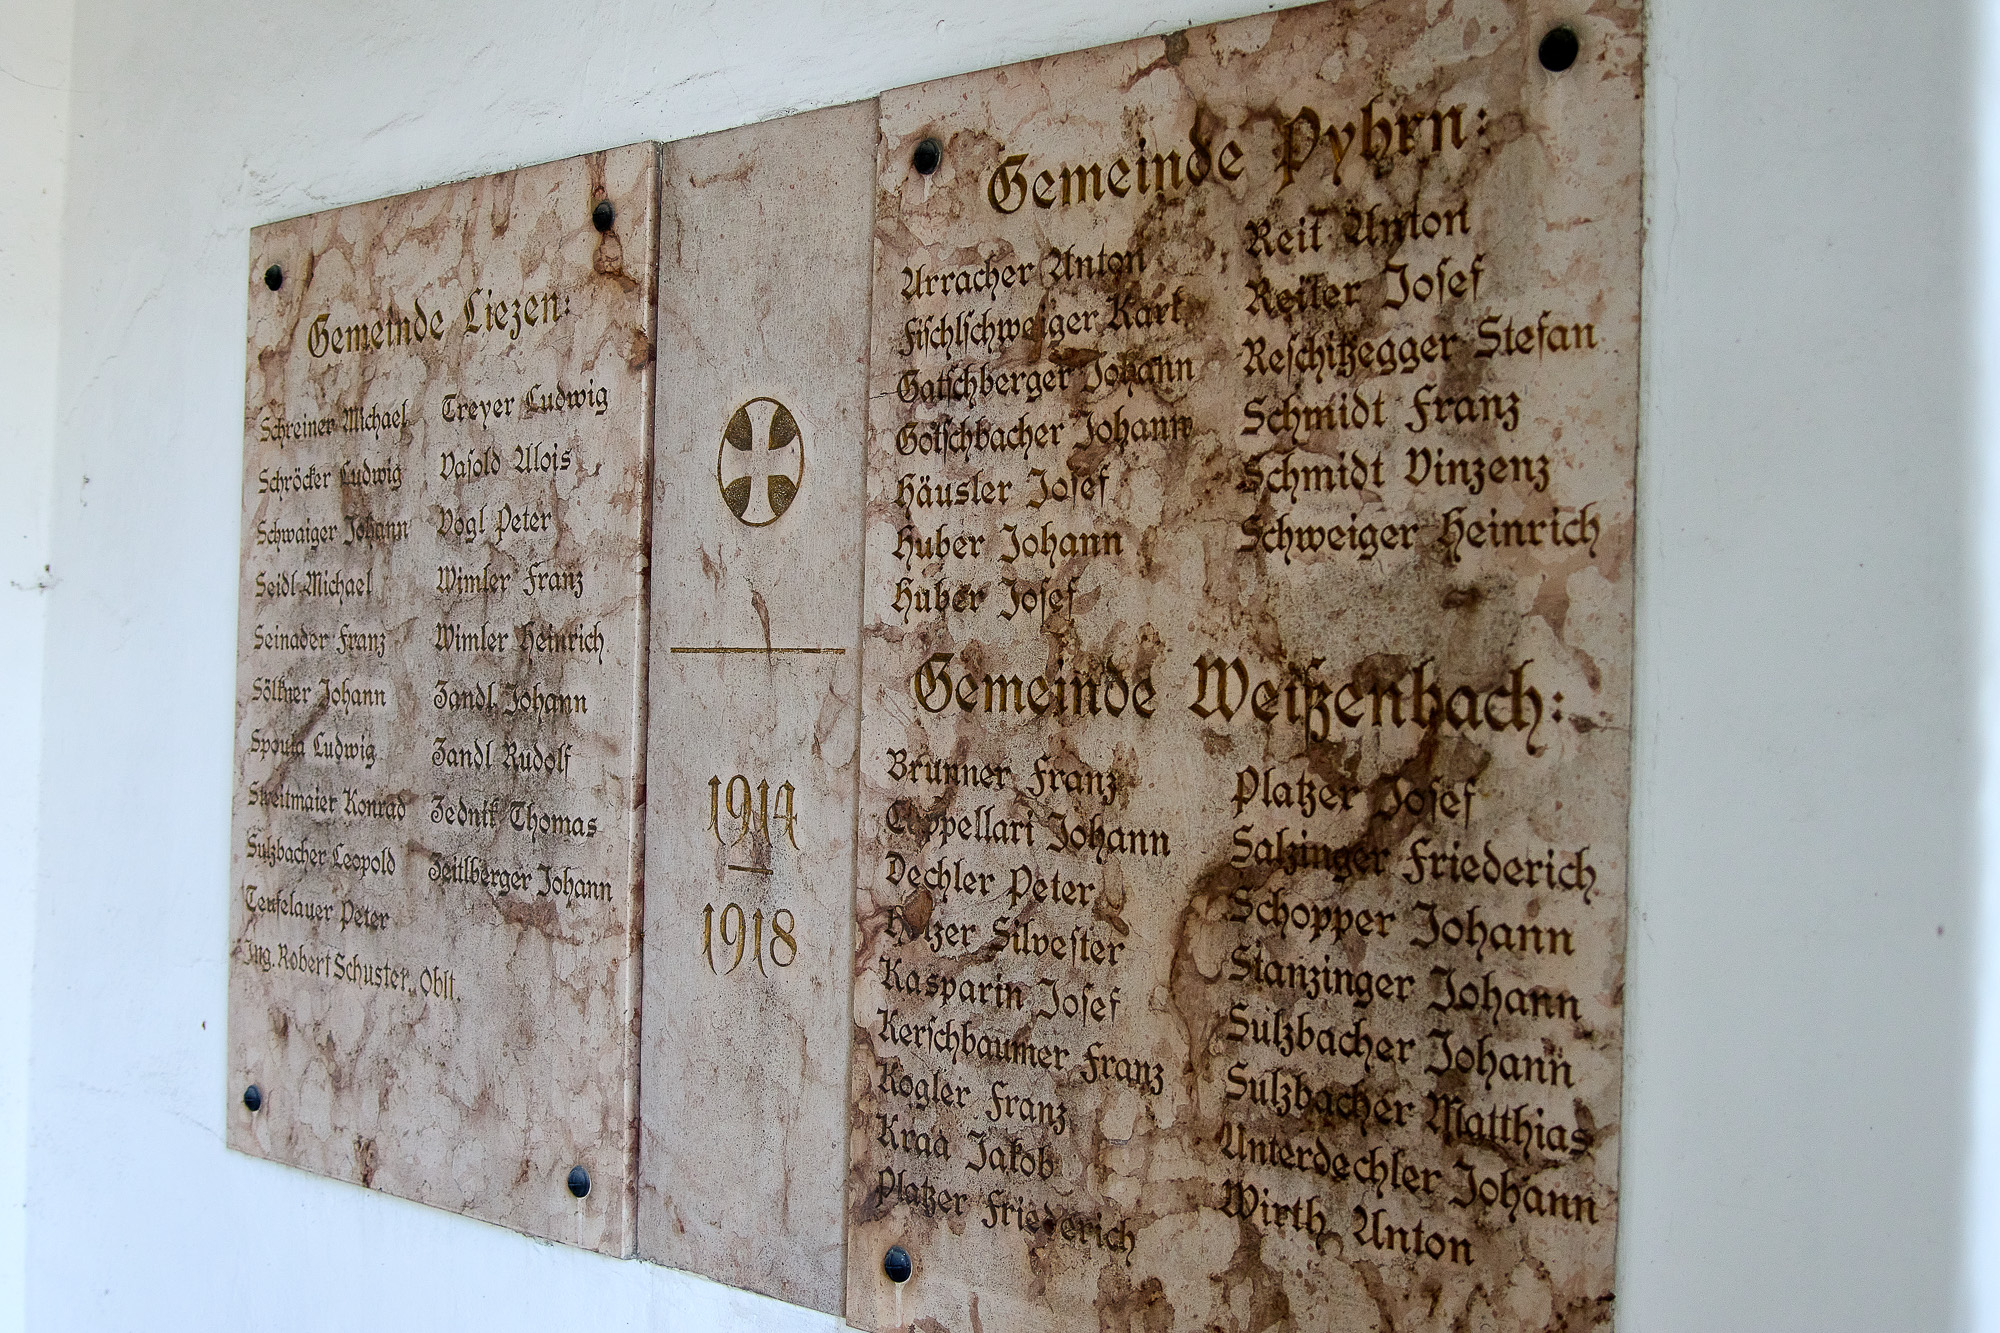 Gemeinde Liezen:
Schreiner Michael
Schröcker Ludwig
Schwaiger Johann
Seidl Michael
Seinader Franz
Sölkner Johann
Ludwig
Streitmaier Konrad
Sulzbacher Leopold
Teufelauer Peter
Ing. Robert Schuster, Oblt.
Treyer Ludwig
Vasold Alois
Vogl Peter
Wimler Franz
Wimler Heinrich
Zandl Johann
Zandl Rudolf
Zednik Thomas
Zeitlberger Johann
1914
–
1918
Gemeinde Pyhrn:
Arracher Anton
Fischlschweiger Karl
Gatschberger Johann
Gotschbacher Johann
Häusler Josef
Huber Johann
Huber Josef
Reit Anton
Reiter Josef
Reschitzegger Stefan
Schmidt Franz
Schmidt Vinzenz
Schweiger Heinrich
Gemeinde Weißenbach:
Brunner Franz
Cappellari Johann
Dechler Peter
Holzer Silvester
Kasparin Josef
Kerschbaumer Franz
Kogler Franz
Kraa Jakob
Platzer Friederich
Platzer Josef
Salzinger Friederich
Schopper Johann
Stanzinger Johann
Sulzbacher Johann
Sulzbacher Matthias
Unterdechler Johann
Wirth Anton